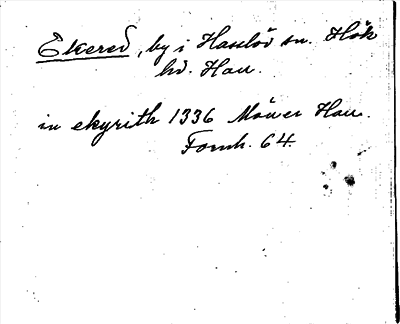 Ekered, by i Hasslöv sn. Hök
hd. Hall.
in ekyrith 1336 Möller Hall.
Fornh. 64.